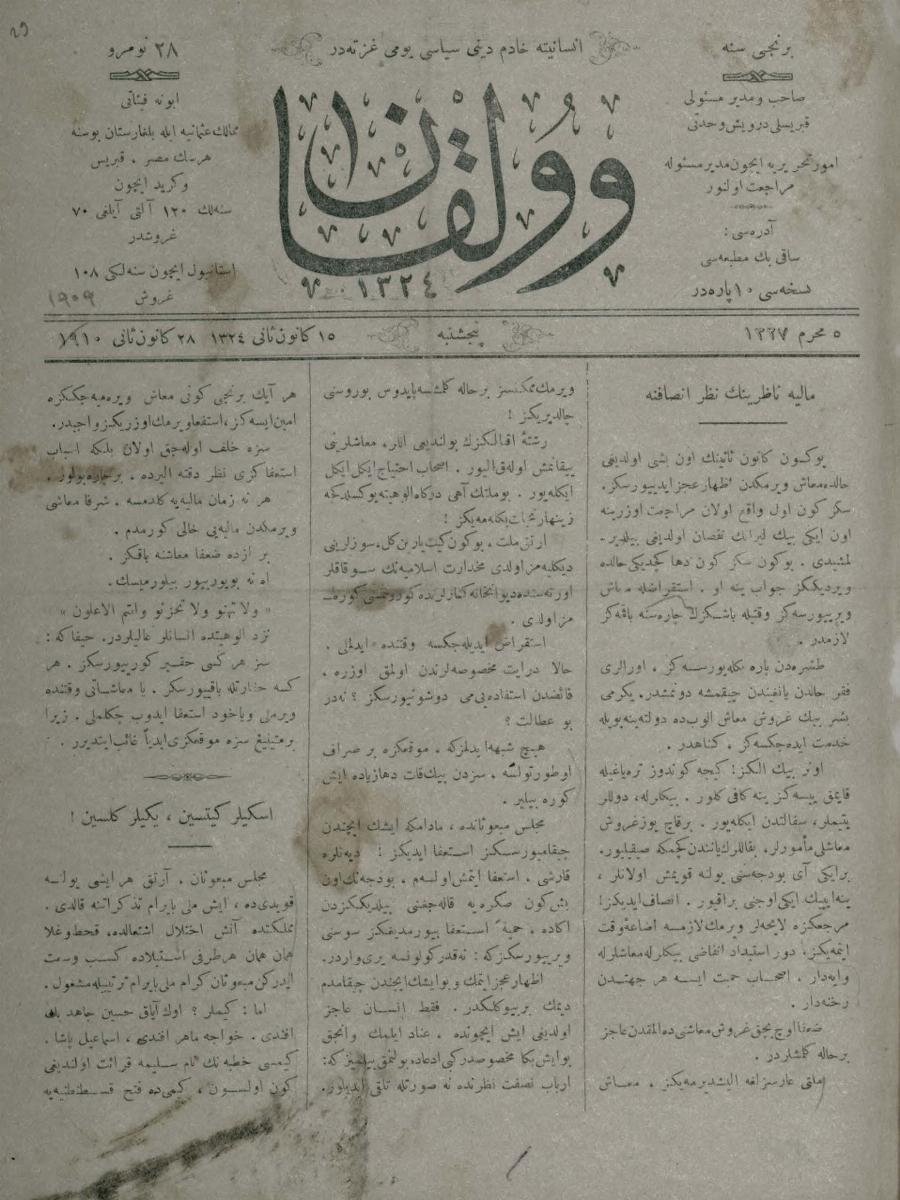 برنجی سنه
صاحب و مدیر مسئولی
قبریسلی درویش وحدتی
امور تحریریه ایچون مدیر مسئوله
مراجعت اولنور
آدره‌سی :
ساقی بك مطبعه‌سی
نسخه‌سی ۱۰ پاره‌در
انسانیته خادم دینی سیاسی یومی غزته‌در
وولقان
۱۳۲۴
۲۸ نومرو
ابونه فیئاتی
ممالك عثمانیه ایله بلغارستان بوسنه
هرسك مصر . قبریس
وكرید ایچون
سنه‌لك ۱۲۰ آلتی آیلغی ۷۰
غروشدر
استانبول ایچون سنه‌لكی ۱۰۸
غروش
۱۹۰۹
۵ محرم ۱۳۲۷
پنجشنبه
۱۵ كانون ثانی ۱۳۲٤ ۲۸ كانون ثانی ۱۹۱۰
مالیه ناظرینك نظر انصافنه
بوكون كانون ثانینك اون بشی اولدیغی
حالده معاش ویرمكدن اظهار عجز ایدییورسكز.
سكز كون اول واقع اولان مراجعت اوزرینه
اون ایكی بیك لیرانك نقصان اولدیغی بیلدیر-
لمشیدی . بوكون سكز كون دها كچدیكی حالده
ویردیككز جواب ینه او . استقراضله معاش
ویرییورسه‌كز وقتیله باشكزك چاره‌سنه باقه‌كز
لازمدر .
طشره‌دن پاره بكله‌یورسه‌كز . اورالری
فقر حالدن یانغیندن چیقمشه دونمشدر . یكرمی
بشر بیك غروش معاش آلوب ده دولته ینه بویله
خدمت ایده‌جكسه‌كز . كناهدر .
اونر بیك آلكز! كیجه كوندوز تره‌یاغیله
قایمق ییسه‌كز ینه كافی كلور . بیكارله، دوللر
یتیملر، سفالتدن ایكله‌یور . برقاچ یوز غروش
معاشلی مأمورلر، بقاللرك یانندن كچمكه صیقیلیور.
برایكی آی بودجه‌سنی یولنه قویمش اولانلر ،
ینه ایپك ایكی اوجنی براقیور . انصاف ایدیكز!
مرجعكزه لایحه‌لر ویرمك لازمسه اضاعهٔ وقت
ایتمه‌یكز. دور استبداد انقاضی بیكارله معاشلرله
وایه‌دار . اصحاب حمیت ایسه هر جهتدن
رخنه‌دار .
ضمناً اوچ بچق غروش معاشی ده آلمقدن عاجز
برحاله كلمشلردر .
ملتی عارسزلغه آلیشدیرمه‌یكز . معاش
ویرمك ممكنسز برحاله كلمشسه پایدوس بوروسنی
چالدیریكز !
رشتهٔ اقبالكزك بولندیغی آنلر، معاشلرینی
ییقانمش اوله‌ق آلیور . اصحاب احتیاج ایكل ایكل
ایكله‌یور . بوملتك آهی دركاه الوهیته یوكسلدكجه
زینهار نجات بكله‌مه‌یكز !
آرتق ملت ، بوكون كیت یارین كل ، سوزلرینی
دیكله‌مز اولدی مخدارت اسلامیه‌نك سوقاقلر
اورته‌سنده دیوانخانه كنارلرنده كوردیرمسنی كوره‌مـ
مز اولدی .
استقراض ایدیله‌جكسه وقتنده ایدلملی .
حالا درایت مخصوصه‌لرندن اولمق اوزره .
فائضدن استفاده یی‌می دوشونیورسكز ؟ نه‌در
بو عطالت ؟
هیچ شبهه ایدلمزكه . موقعكزه بر صراف
اوطورتولسه . سزدن بیك قات دها زیاده ایش
كوره بیلیر .
مجلس مبعوثانده ، مادامكه ایشك ایچندن
چیقامیورسكز استعفا ایدیكز ! دیه‌نلره
قارشی . استعفا ایتمش اولسه‌م . بودجه‌نك اون
بش كون صكره‌یه قاله‌جغنی بیلدیككزدن
آكاده . حمیةً استعفا بیورمدیغكز سوسنی
ویرییورسكزكه : نه‌قدر كولونسه یری واردر.
اظهار عجز ایتمك و بو ایشك ایچندن چیقامدم
دیمك بریوكلكدر . فقط انسان عاجز
اولدیغی ایش ایچونده . عناد ایلمك وانجق
بوایش بكا مخصوصدركبی ادعاده بولنمق بیلیرمیزكه:
ارباب نصفت نظرنده نه صورتله تلقی ایدیلیور.
هر آیك برنجی كونی معاش ویره‌میه‌جككزه
امین ایسه‌كز، استعفا ویرمك اوزریكزه واجبدر.
سزه خلف اوله‌جق اولان بلكه اسباب
استعفاكزی نظر دقته آلیرده . برچاره بولور .
هر نه زمان مالیه‌یه كلدمسه . شرفا معاشی
ویرمكدن مالیه‌یی خالی كورمدم .
بر ازده ضعفا معاشنه باقكز .
آه نه بویوریور بیلورمیسك .
« ولا تهنو ولا تحزنو وانتم الاعلون »
نزد الوهیتده انسانلر عالیلردر. حیفاكه :
سز هر كسی حقیر كوریورسكز . هر
كسه حقارتله باقییورسكز . یا معاشاتی وقتنده
ویرملی ویاخود استعفا ایدوب چكلملی . زیرا
برمتینلغ سزه موقعكزی ابدیاً غائب ایتدیرر .
اسكیلر كیتسین ، یكیلر كلسین !
مجلس مبعوثان . آرتق هر ایشی یولنه
قویدی ده ، ایش ملی بایرام تذكراتنه قالدی .
مملكتده آتش اختلال اشتعالده، قحط وغلا
همان همان هرطرفی استیلاده كسب وسعت
ایدركن مبعوثان كرام ملی بایرام ترتیبیله مشغول .
اما : كیملر ؟ اوك آیاق حسین جاهد بك
افندی . خواجه ماهر افندی ، اسماعیل پاشا .
كیمسی خطبه‌نك نام سلیمه قرائت اولندیغی
كون اولسون ، كیمی ده فتح قسطنطنیه‌یه